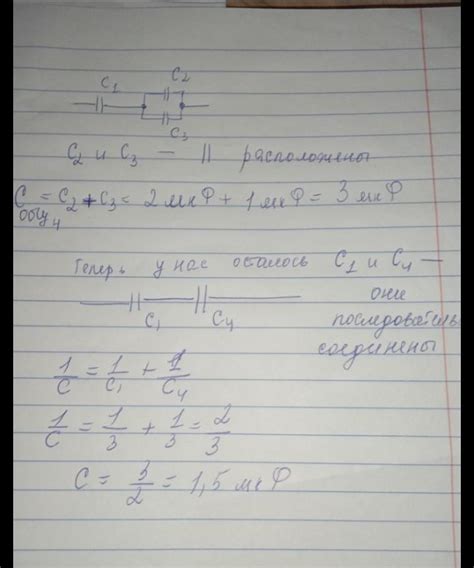 C1
C2
C3
C2 и C3 — || расположены
Cобщ4 = C2 + C3 = 2 мкФ + 1 мкФ = 3 мкФ
Теперь у нас осталось C1 и C4 —
они
последователь
соединены
C1 C4
1/C = 1/C1 + 1/C4
1/C = 1/3 + 1/3 = 2/3
C = 3/2 = 1,5 мкФ